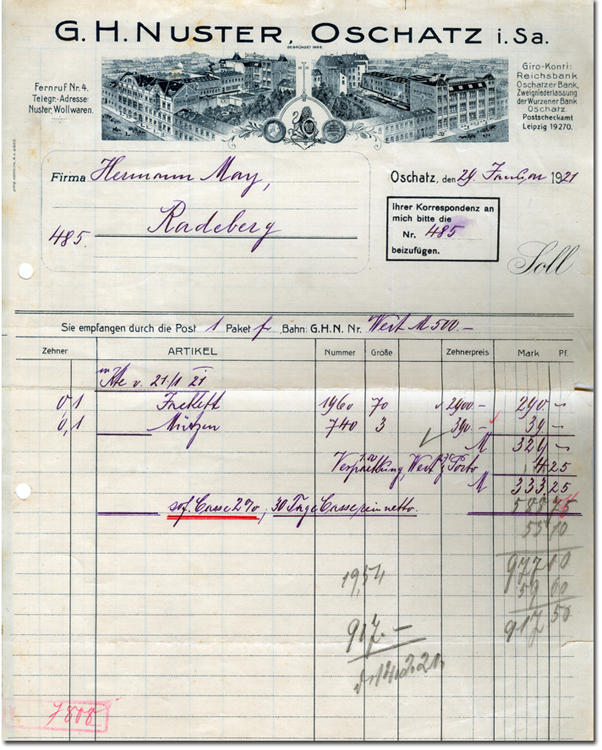 G. H. NUSTER, OSCHATZ i. Sa.
GEGRÜNDET
Fernruf Nr. 4.
Telegr.-Adresse:
Nuster, Wollwaren.
Giro-Konti:
Reichsbank
Oschatzer Bank,
Zweigniederlassung
der Wurzener Bank
Oschatz
Postscheckamt
Leipzig 19270.
Firma Hermann May,
Radeberg
485.
Oschatz, den 24. Januar 1921
Ihrer Korrespondenz an
mich bitte die
Nr. 485
beizufügen.
Soll
Sie empfangen durch die Post 1 Paket fr, Bahn: G.H.N. Nr. Wert M 500.—
Zehner ARTIKEL Nummer Größe Zehnerpreis Mark Pf.
v. 21/1 21
0,1 Jackett 1960 70 2900.— 290.—
0,1 Mützen 740 3 390.— 39.—
M 329.—
Verpackung, Wert & Porto 4.25
M 333.25
sof. Casse 2%, 30 Tage Casse rein netto.
588 75
55 10
977 10
59 60
917 50
19,54
917.—
14.2.21
7808